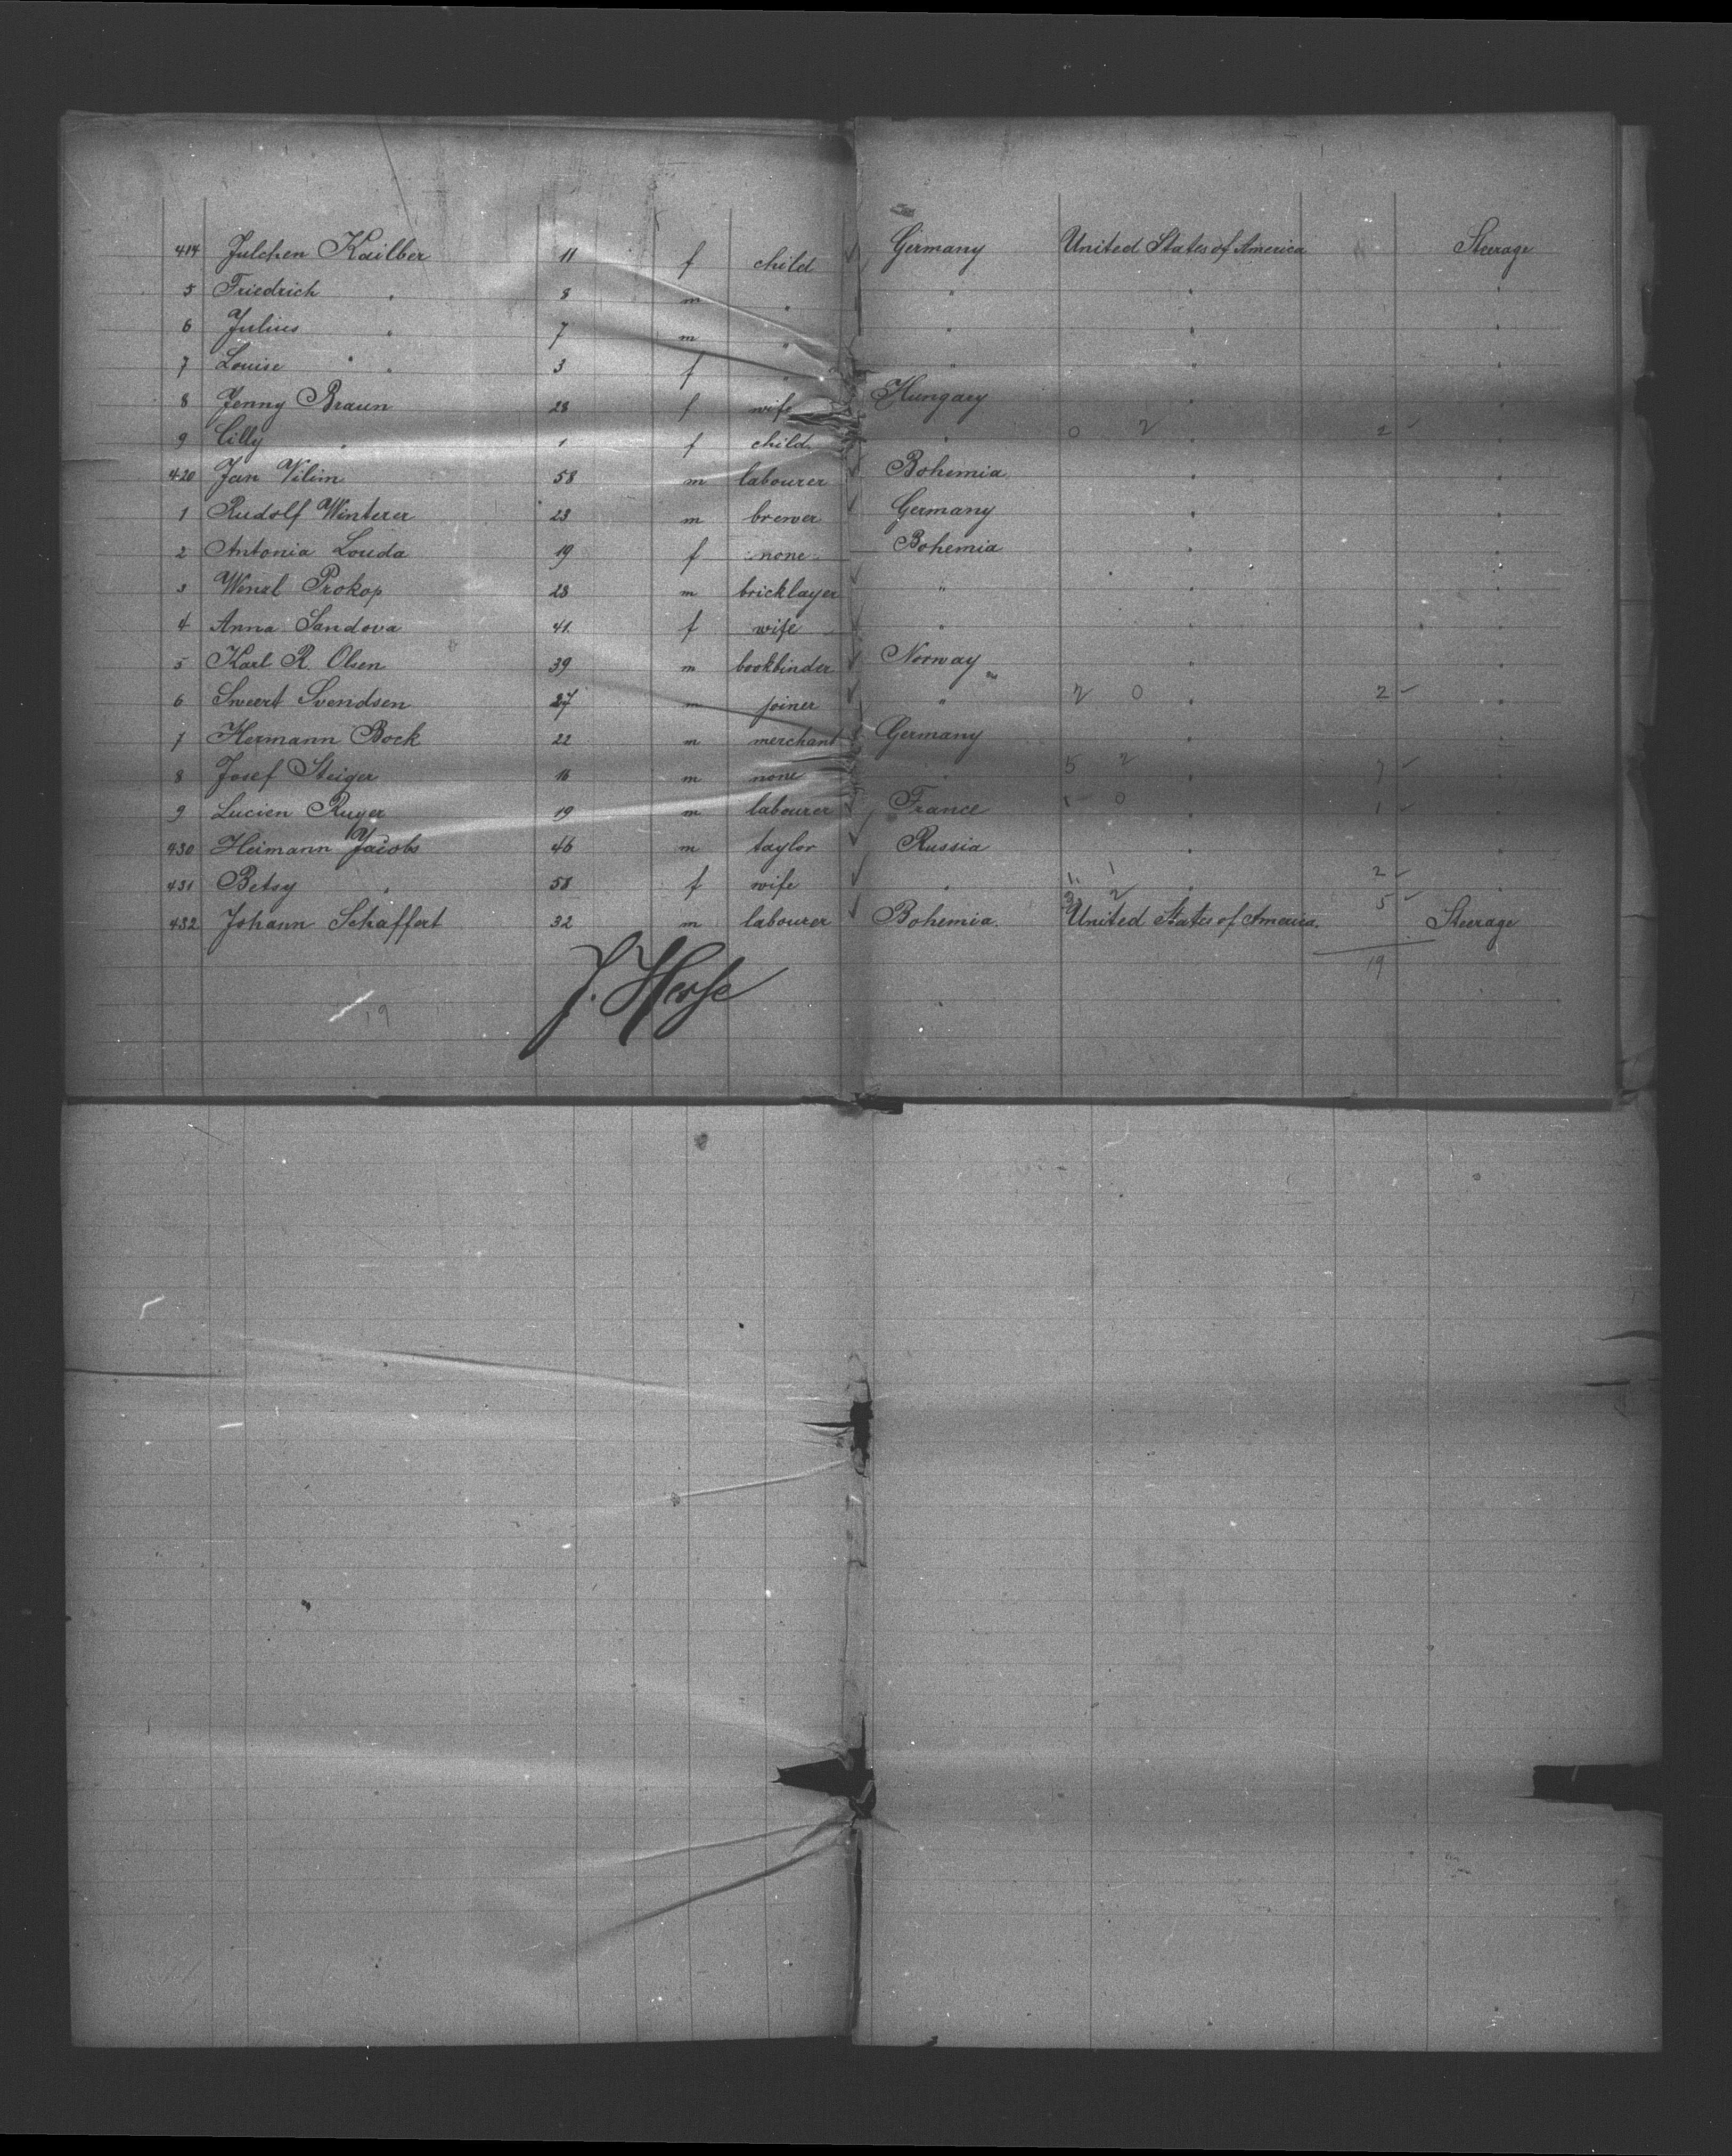 414 Julchen Kailber 11 f child Germany United States of America Steerage
5 Friedrich " 8 m " " " "
6 Julius " 7 m " " " "
7 Louise " 3 f " " " "
8 Jenny Braun 28 f wife Hungary " "
9 Cilly " 1 f child " 0 2 " 2 - "
420 Jan Vilim 58 m labourer Bohemia " "
1 Rudolf Winterer 23 m brewer Germany " "
2 Antonia Louda 19 f none Bohemia " "
3 Wenzl Prokop 28 m bricklayer " " "
4 Anna Sandova 41 f wife " " "
5 Karl R. Olsen 39 m bookbinder Norway " "
6 Sweert Svendsen 27 m joiner " 2 0 " 2 - "
7 Hermann Bock 22 m merchant Germany " "
8 Josef Steiger 16 m none " 5 2 " 7 - "
9 Lucien Ruyer 19 m labourer France 1 0 " 1 - "
430 Heimann Jacobs 46 m taylor Russia " "
431 Betsy " 58 f wife " 1 1 " 2 - "
432 Johann Schaffert 32 m labourer Bohemia. 3 2 United States of America. 5 - Steerage
19
19